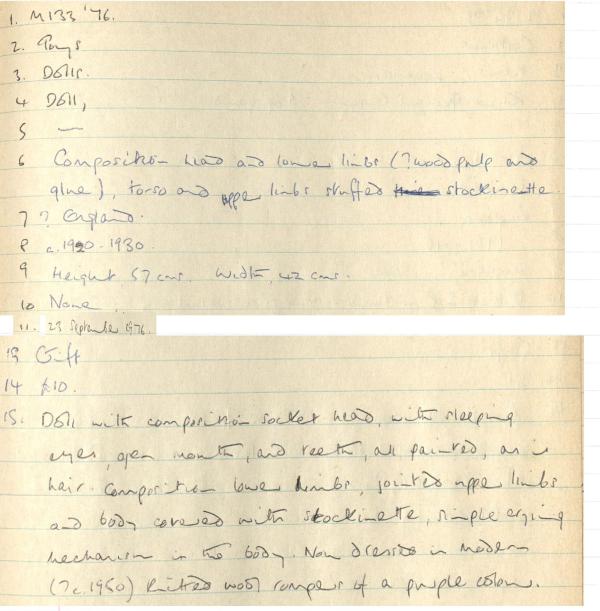 1. M133 '76.
2. Toys
3. Dolls.
4 Doll,
5 —
6 Composition head and lower limbs (? wood pulp and
glue), torso and upper limbs stuffed stockinette.
7 ? England.
8 c.1920-1930.
9 Height, 57 cms. Width, 42 cms.
10 None
11. 23 September 1976.
13 Gift
14 £10.
15. Doll with composition socket head, with sleeping
eyes, open mouth, and teeth, all painted, as is
hair. Composition lower limbs, jointed upper limbs
and body covered with stockinette, simple crying
mechanism in the body. Now dressed in modern
(? c.1950) knitted wool rompers of a purple colour.